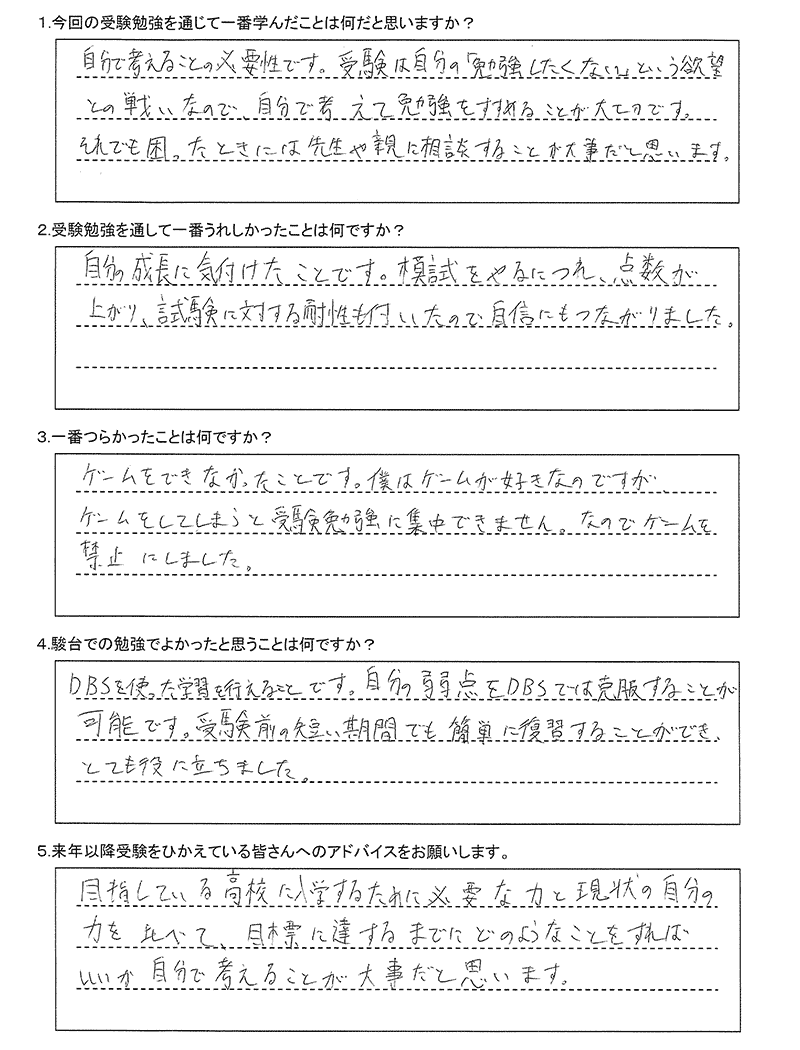 1.今回の受験勉強を通じて一番学んだことは何だと思いますか？
自分で考えることの必要性です。受験は自分の「勉強したくない」という欲望
との戦いなので、自分で考えて勉強をすすめることが大切です。
それでも困ったときには先生や親に相談することが大事だと思います。
2.受験勉強を通して一番うれしかったことは何ですか？
自分の成長に気付けたことです。模試をやるにつれ、点数が
上がり、試験に対する耐性も付いたので自信にもつながりました。
3.一番つらかったことは何ですか？
ゲームをできなかったことです。僕はゲームが好きなのですが、
ゲームをしてしまうと受験勉強に集中できません。なのでゲームを
禁止にしました。
4.駿台での勉強でよかったと思うことは何ですか？
DBSを使った学習を行えることです。自分の弱点をDBSでは克服することが
可能です。受験前の短い期間でも簡単に復習することができ、
とても役に立ちました。
5.来年以降受験をひかえている皆さんへのアドバイスをお願いします。
目指している高校に入学するために必要な力と現状の自分の
力を比べて、目標に達するまでにどのようなことをすれば
いいか自分で考えることが大事だと思います。